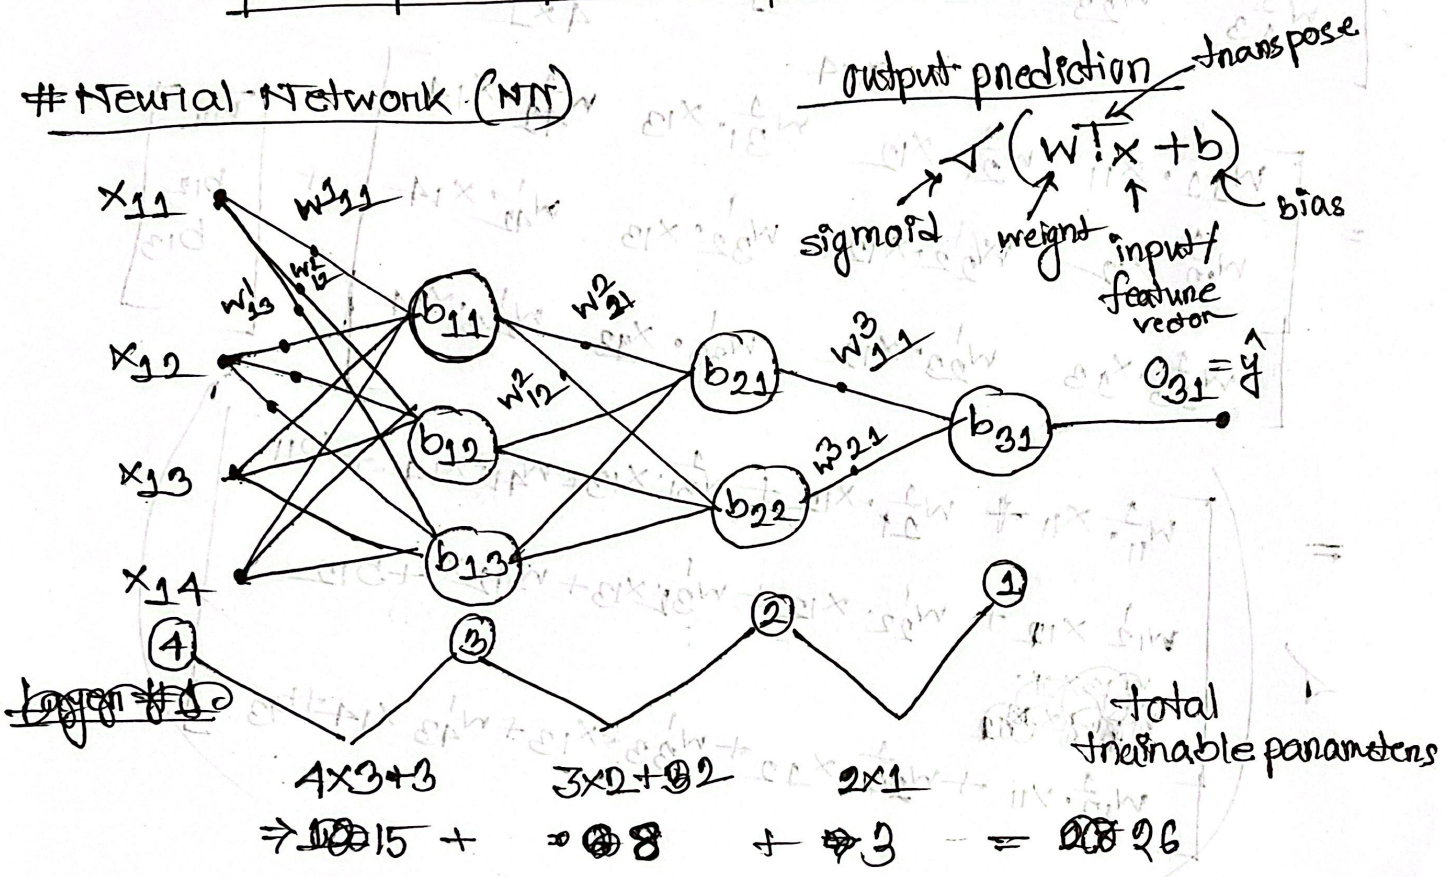 # Neurial Network (NN)
output prediction
transpose
σ(wᵀ.x + b)
sigmoid
weignt
input/
feature
vector
bias
x₁₁
w¹₁₁
w¹₁₂
w¹₁₃
x₁₂
x₁₃
x₁₄
b₁₁
b₁₂
b₁₃
w²₂₁
w²₁₂
b₂₁
b₂₂
w³₁₁
w³₂₁
b₃₁
O₃₁ = ŷ
4
3
2
1
total
trainable parameters
4x3+3
3x2+2
2x1
⇒ 15 + 8 + 3 = 26